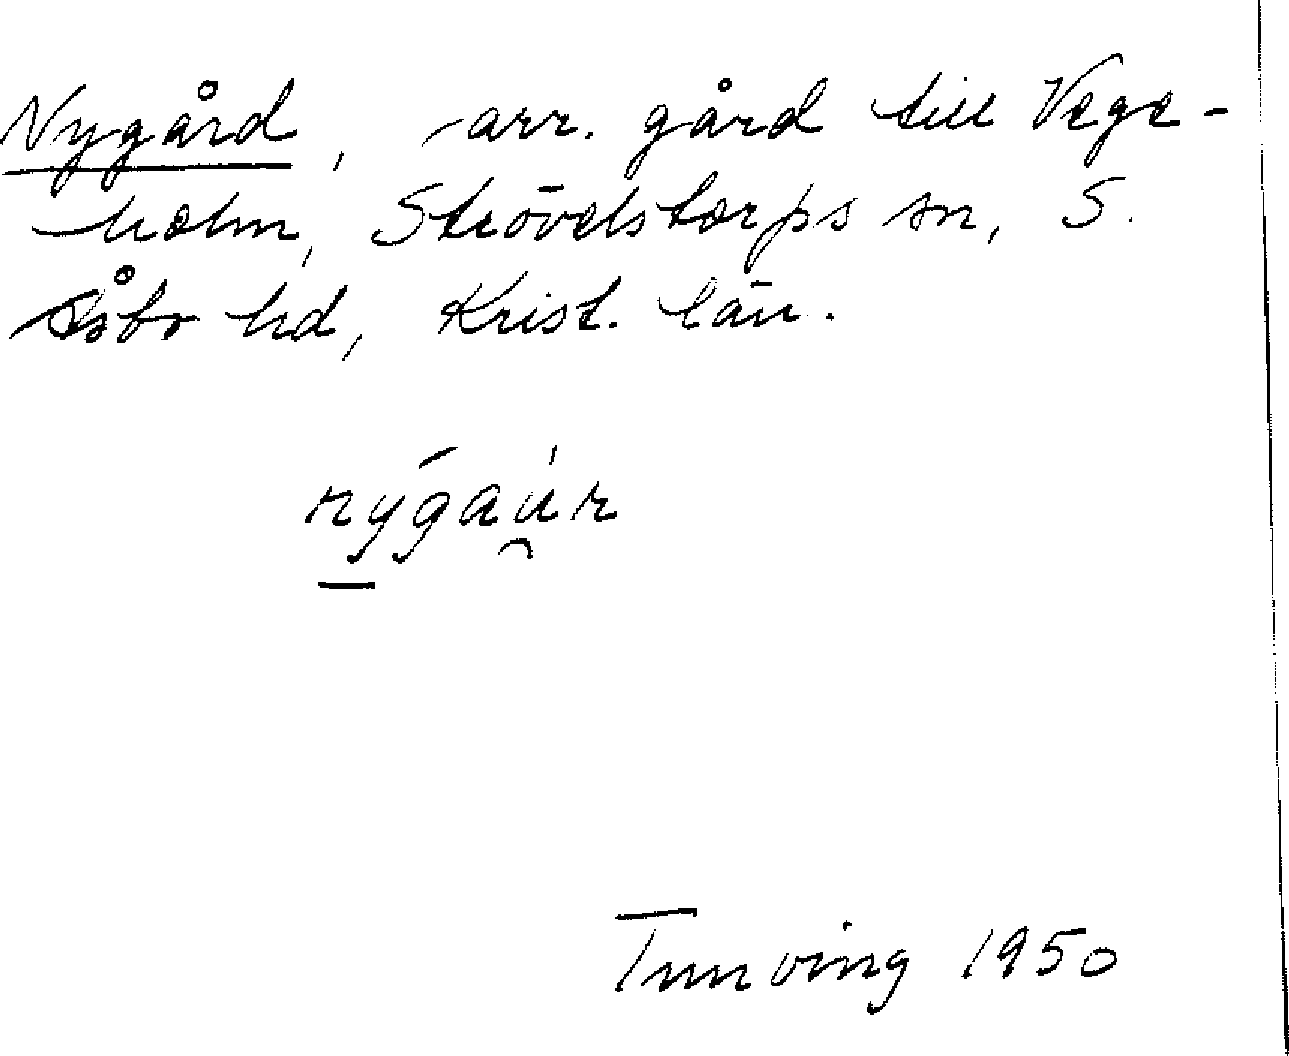 Nygård, arr. gård till Vege-
holm, Strövelstorps sn, S.
Åsbo hd, Krist. län.
nýgau̯r
Tunving 1950